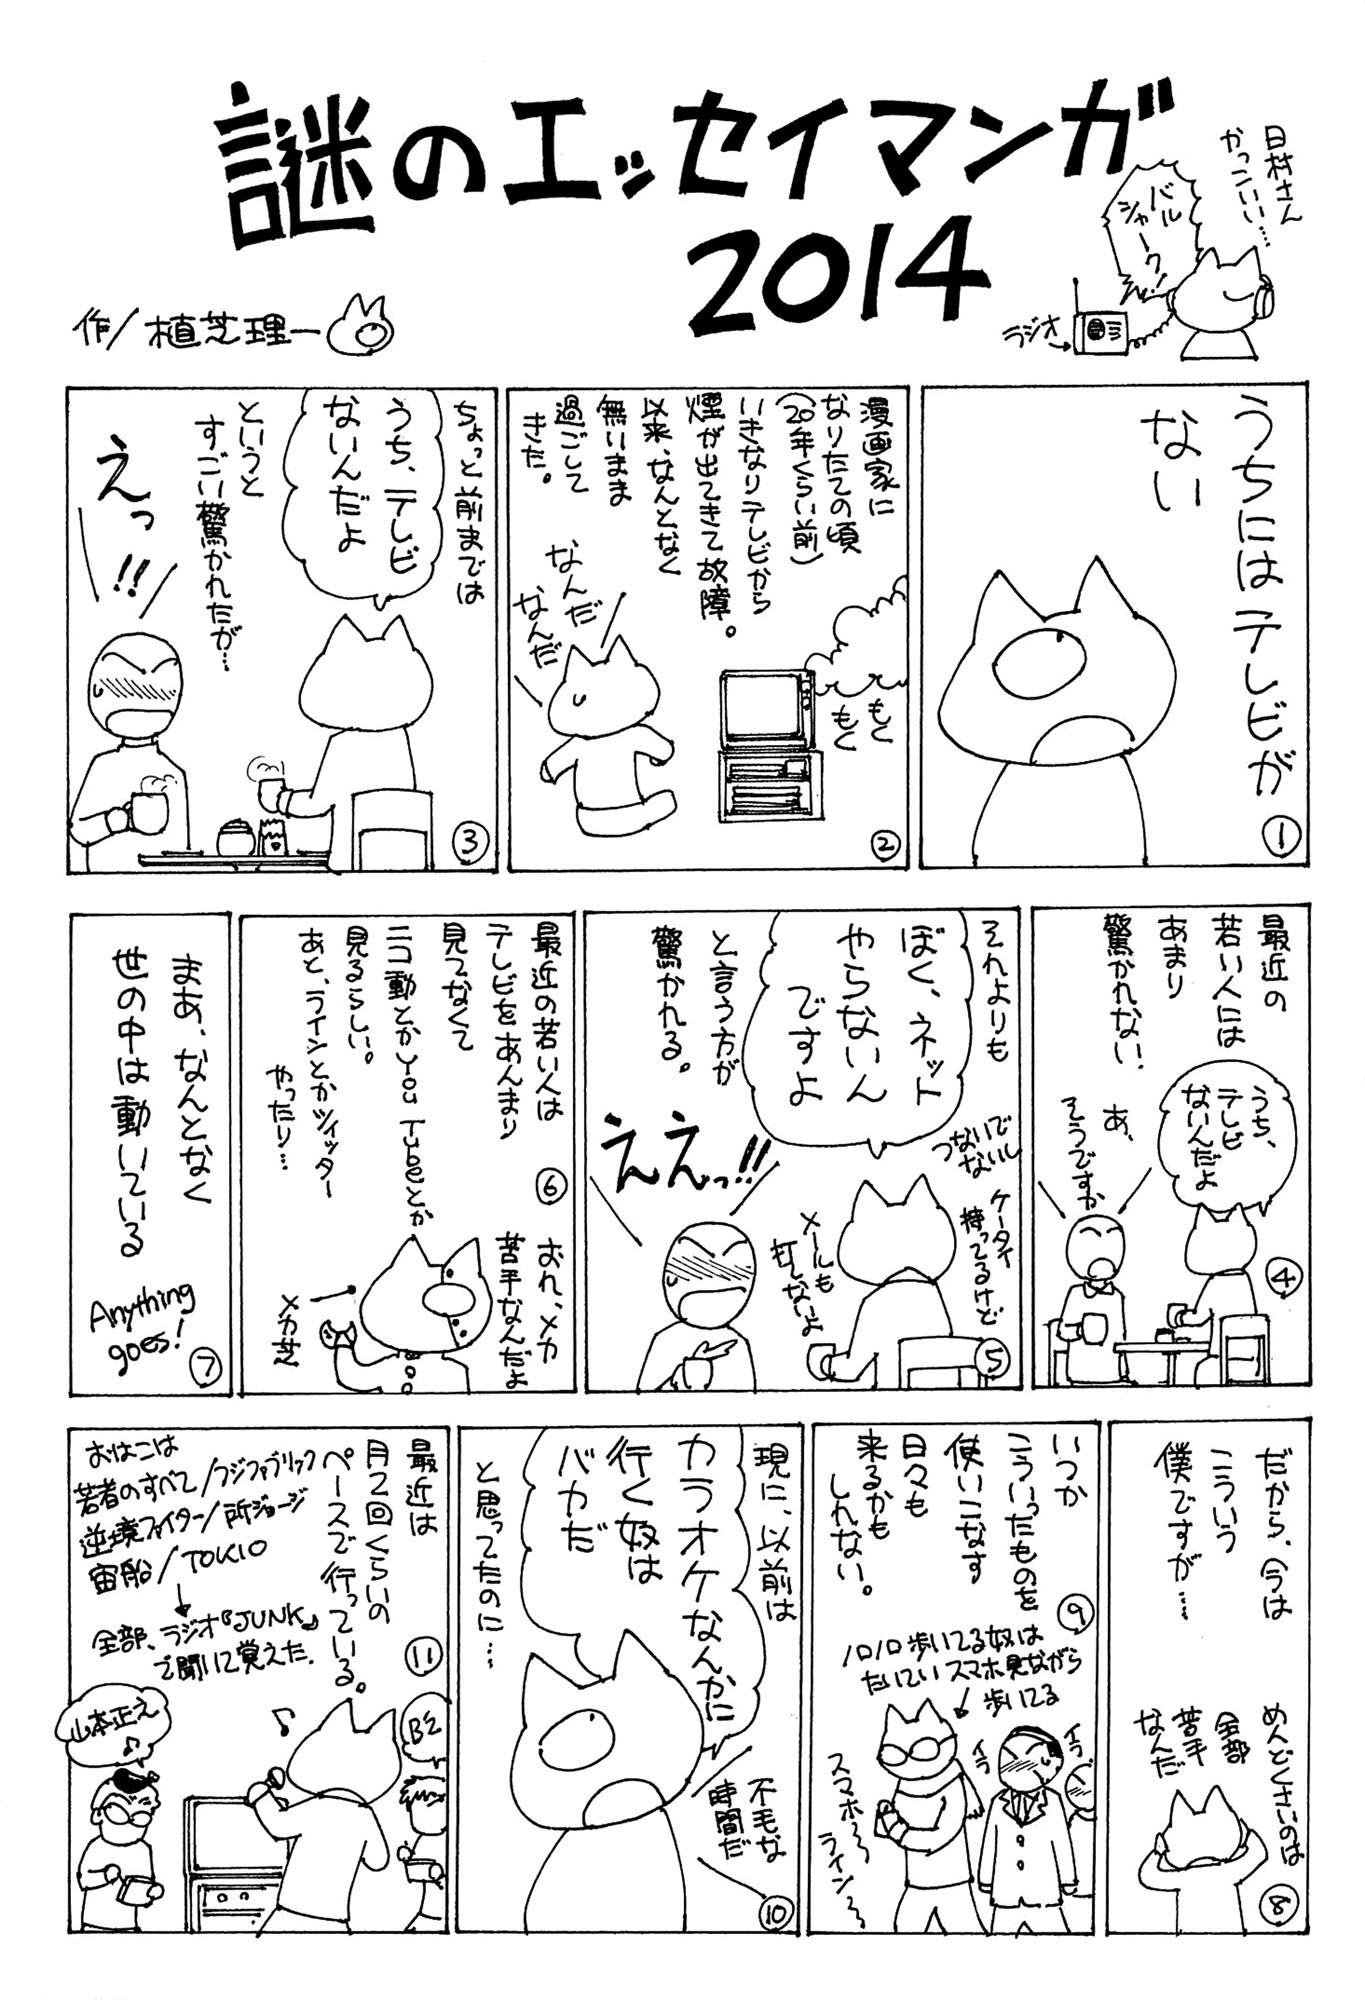 謎のエッセイマンガ
2014
日村さん
かっこいい…
バル
シャーク!
ラジオ
作/植芝理一
うちにはテレビが
ない
①
漫画家に
なりたての頃
(20年くらい前)
いきなりテレビから
煙が出てきて故障。
以来、なんとなく
無いまま
過ごして
きた。
もく
もく
なんだ
なんだ
②
ちょっと前までは
うち、テレビ
ないんだよ
というと
すごい驚かれたが…
えっ!!
③
最近の
若い人には
あまり
驚かれない.
うち、
テレビ
ないんだよ
あ、
そうですか
④
それよりも
ぼく、ネット
やらないん
ですよ
と言う方が
驚かれる。
つないで
ないし
ケータイ
持ってるけど
メールも
打てないよ
ええっ!!
⑤
最近の若い人は
テレビをあんまり
見てなくて
ニコ動とかYou Tubeとか
見るらしい。
あと、ラインとかツイッター
やったり…
⑥
おれ、メカ
苦手なんだよ
メカ芝
まあ、なんとなく
世の中は動いている
Anything
goes!
⑦
だから、今は
こういう
僕ですが…
めんどくさいのは
全部
苦手
なんだ
⑧
いつか
こういったものを
使いこなす
日々も
来るかも
しれない。
⑨
ノロノロ歩いてる奴は
たいていスマホ見ながら
歩いてる
イラ
イラ
スマホ〜
ライン〜
現に、以前は
カラオケなんかに
行く奴は
バカだ
と思ってたのに…
不毛な
時間だ
⑩
最近は
月2回くらいの
ペースで行っている。
おはこは
若者のすべて/フジファブリック
逆境ファイター/所ジョージ
宙船/TOKIO
全部、ラジオ『JUNK』
で聞いて覚えた.
⑪
山本正之
B'z